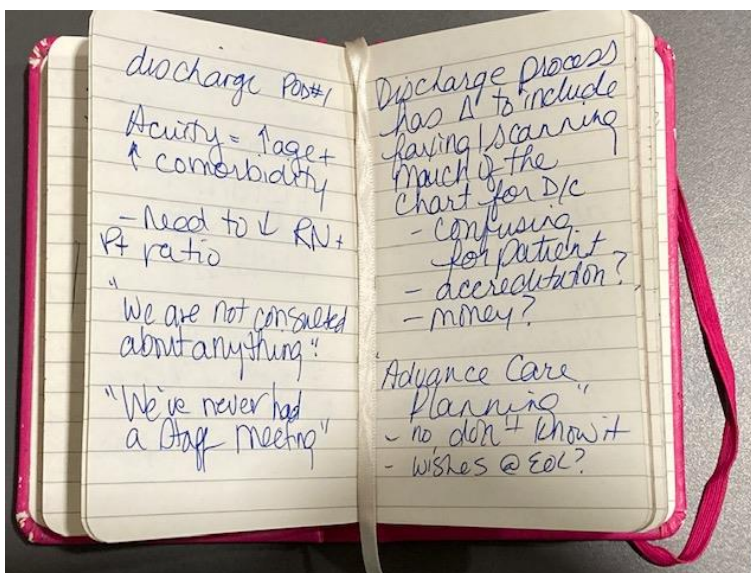 discharge POD#1
Acuity = ↑age +
↑ comorbidity
- Need to ↓ RN +
Pt ratio
"We are not consulted
about anything"
"We've never had
a staff meeting"
Discharge process
has Δ to include
faxing/scanning
much of the
chart for D/C
- confusing
for patient
- accreditation?
- money?
"Advance Care
Planning"
- no, don't know it
- wishes @ EOL?